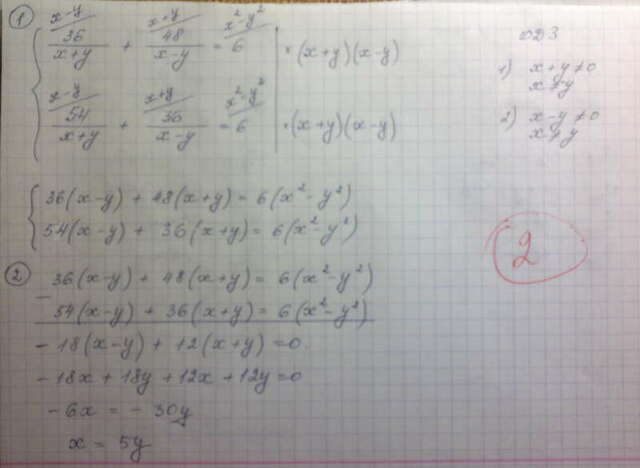 1
x-y x+y x²-y²
36/(x+y) + 48/(x-y) = 6 | · (x+y)(x-y)
x-y x+y x²-y²
54/(x+y) + 36/(x-y) = 6 | · (x+y)(x-y)
ОДЗ
1) x+y≠0
x≠-y
2) x-y≠0
x≠y
36(x-y) + 48(x+y) = 6(x²-y²)
54(x-y) + 36(x+y) = 6(x²-y²)
2
2 36(x-y) + 48(x+y) = 6(x²-y²)
- 54(x-y) + 36(x+y) = 6(x²-y²)
-18(x-y) + 12(x+y) = 0
-18x + 18y + 12x + 12y = 0
-6x = -30y
x = 5y